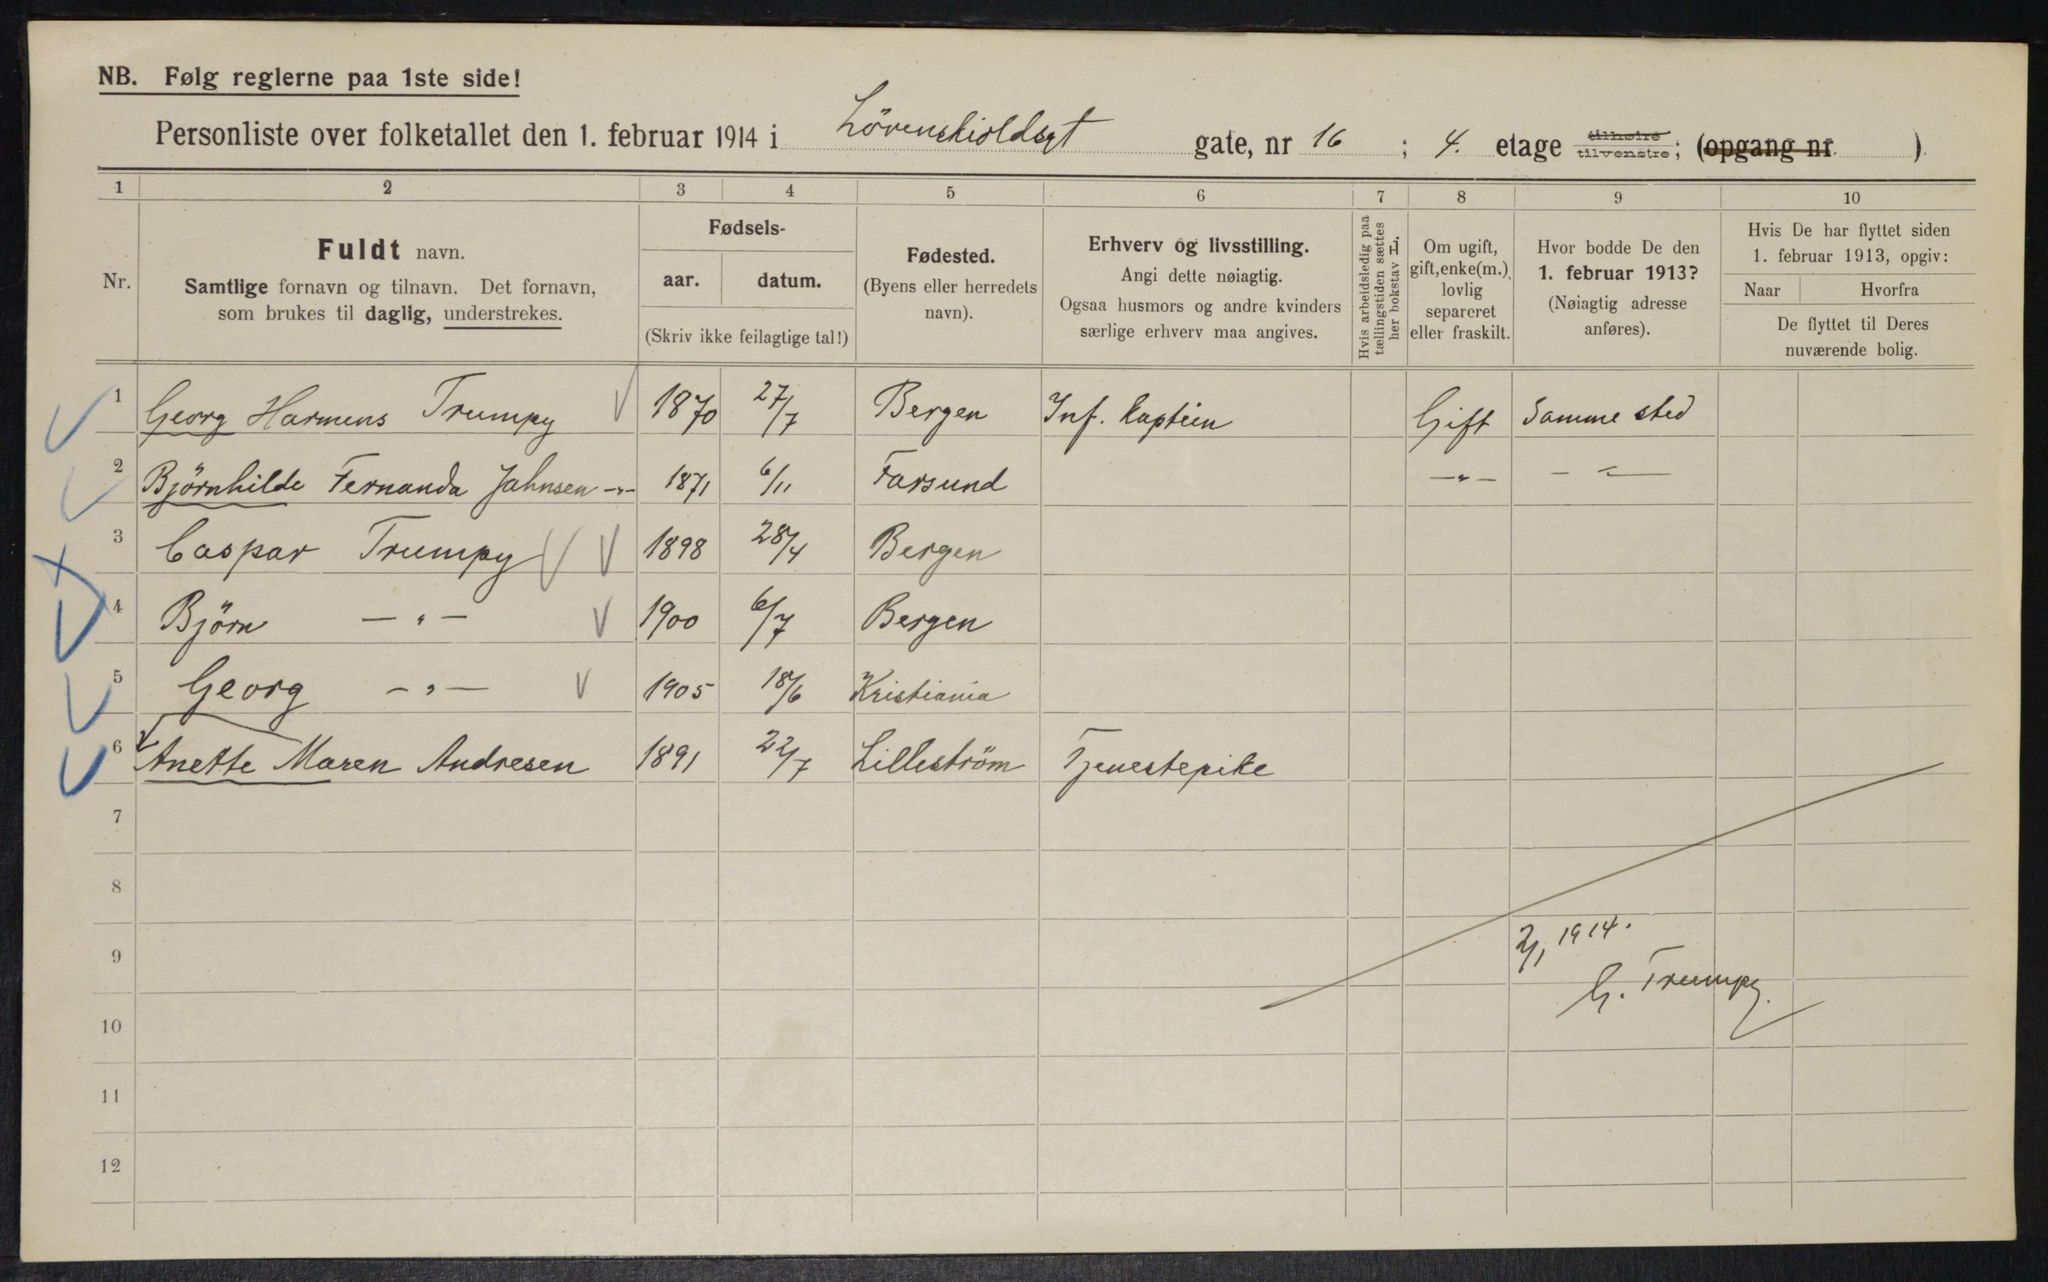 NB. Følg reglerne paa 1ste side!
Personliste over folketallet den 1. februar 1914 i Lövenskioldsgt gate, nr 16 ; 4. etage tilhøire tilvenstre; (opgang nr. ).
1 2 3 4 5 6 7 8 9 10
Nr.
Fuldt navn.
Samtlige fornavn og tilnavn. Det fornavn,
som brukes til daglig, understrekes.
Fødsels-
aar. datum.
(Skriv ikke feilagtige tal!)
Fødested.
(Byens eller herredets
navn).
Erhverv og livsstilling.
Angi dette nøiagtig.
Ogsaa husmors og andre kvinders
særlige erhverv maa angives.
Hvis arbeidsledig paa
tællingstiden sættes
her bokstav L.
Om ugift,
gift, enke(m.),
lovlig
separeret
eller fraskilt.
Hvor bodde De den
1. februar 1913?
(Nøiagtig adresse
anføres).
Hvis De har flyttet siden
1. februar 1913, opgiv:
Naar Hvorfra
De flyttet til Deres
nuværende bolig.
1 Georg Harmens Trumpy 1870 27/7 Bergen Inf. kaptein Gift Samme sted
2 Björnhilde Fernanda Jahnsen -"- 1871 6/11 Farsund -"- -"-
3 Caspar Trumpy 1898 28/4 Bergen
4 Björn -"- 1900 6/7 Bergen
5 Georg -"- 1905 18/6 Kristiania
6 Anette Maren Andresen 1891 22/7 Lilleström Tjenestepike
7
8
9 2/1 1914.
G. Trumpy.
10
11
12